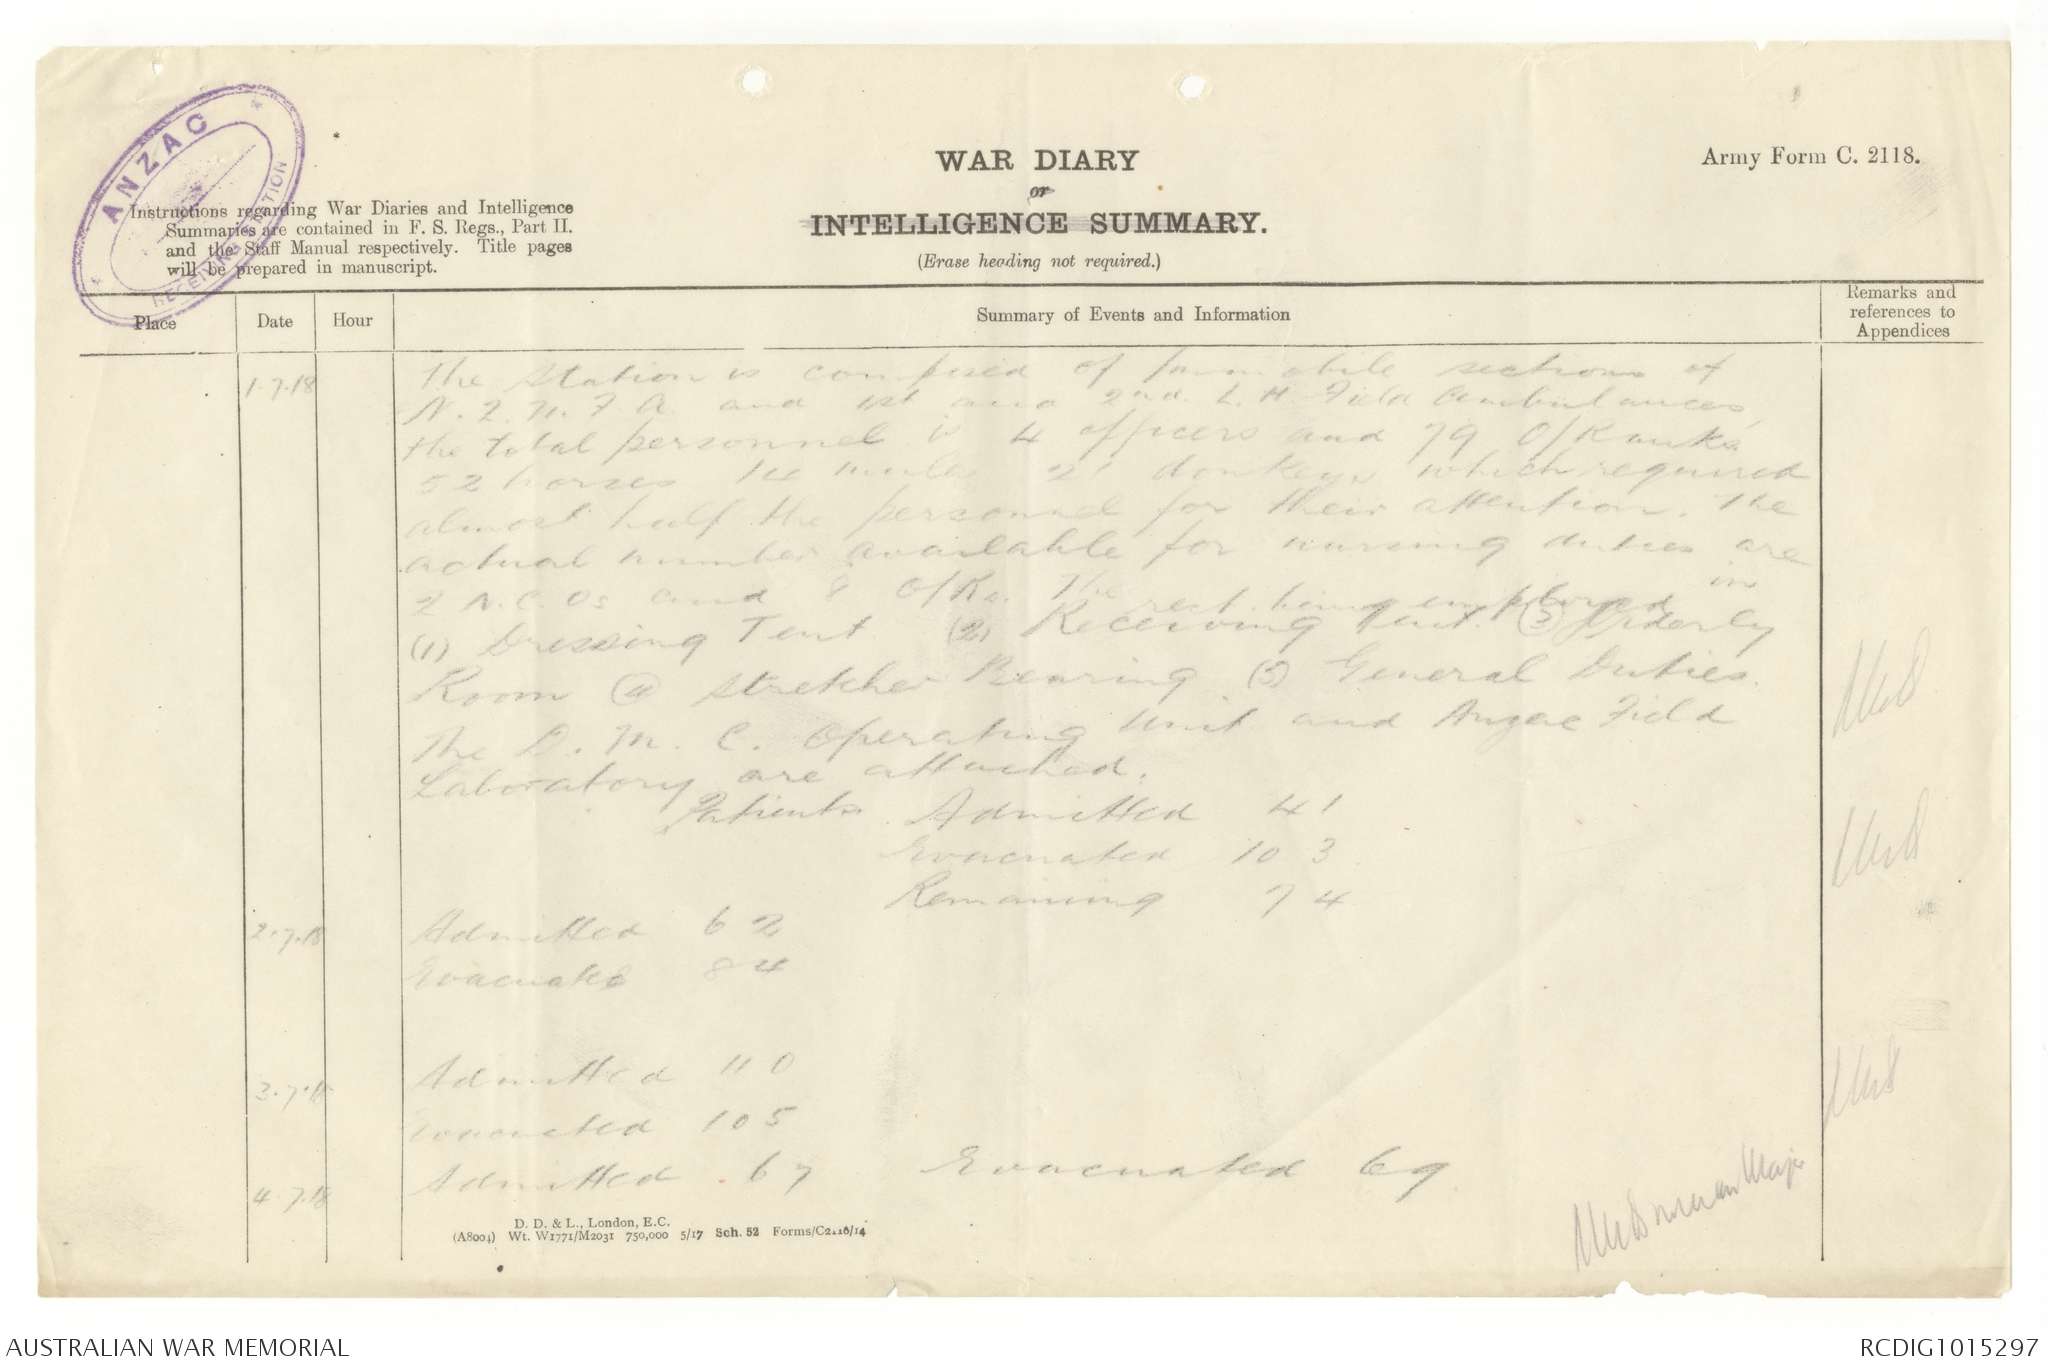 ANZAC
RECEIVING STATION
WAR DIARY
or
INTELLIGENCE SUMMARY.
(Erase heading not required.)
Army Form C. 2118.
Instructions regarding War Diaries and Intelligence
Summaries are contained in F. S. Regs., Part II.
and the Staff Manual respectively. Title pages
will be prepared in manuscript.
Place Date Hour Summary of Events and Information Remarks and references to Appendices
1.7.18 The Station is composed of immobile sections of
N.Z.M.F.A. and 1st and 2nd. L.H. Field Ambulances,
the total personnel is 4 officers and 79 O/Ranks.
52 horses 14 mules 21 donkeys which required
almost half the personnel for their attention. The
actual number available for nursing duties are
2 N.C.Os and 8 O/Rs. The rest being employed in
(1) Dressing Tent (2) Receiving Tent. (3) Orderly
Room (4) Stretcher Bearing (5) General Duties.
The D.M.C. Operating Unit and Anzac Field
Laboratory are attached.
Patients Admitted 41
Evacuated 103
Remaining 74
2.7.18 Admitted 62
Evacuated 84
3.7.18 Admitted 110
Evacuated 105
4.7.18 Admitted 67 Evacuated 69
Major
D. D. & L., London, E.C.
(A8004) Wt. W1771/M2031 750,000 5/17 Sch. 52 Forms/C2118/14
AUSTRALIAN WAR MEMORIAL
RCDIG1015297